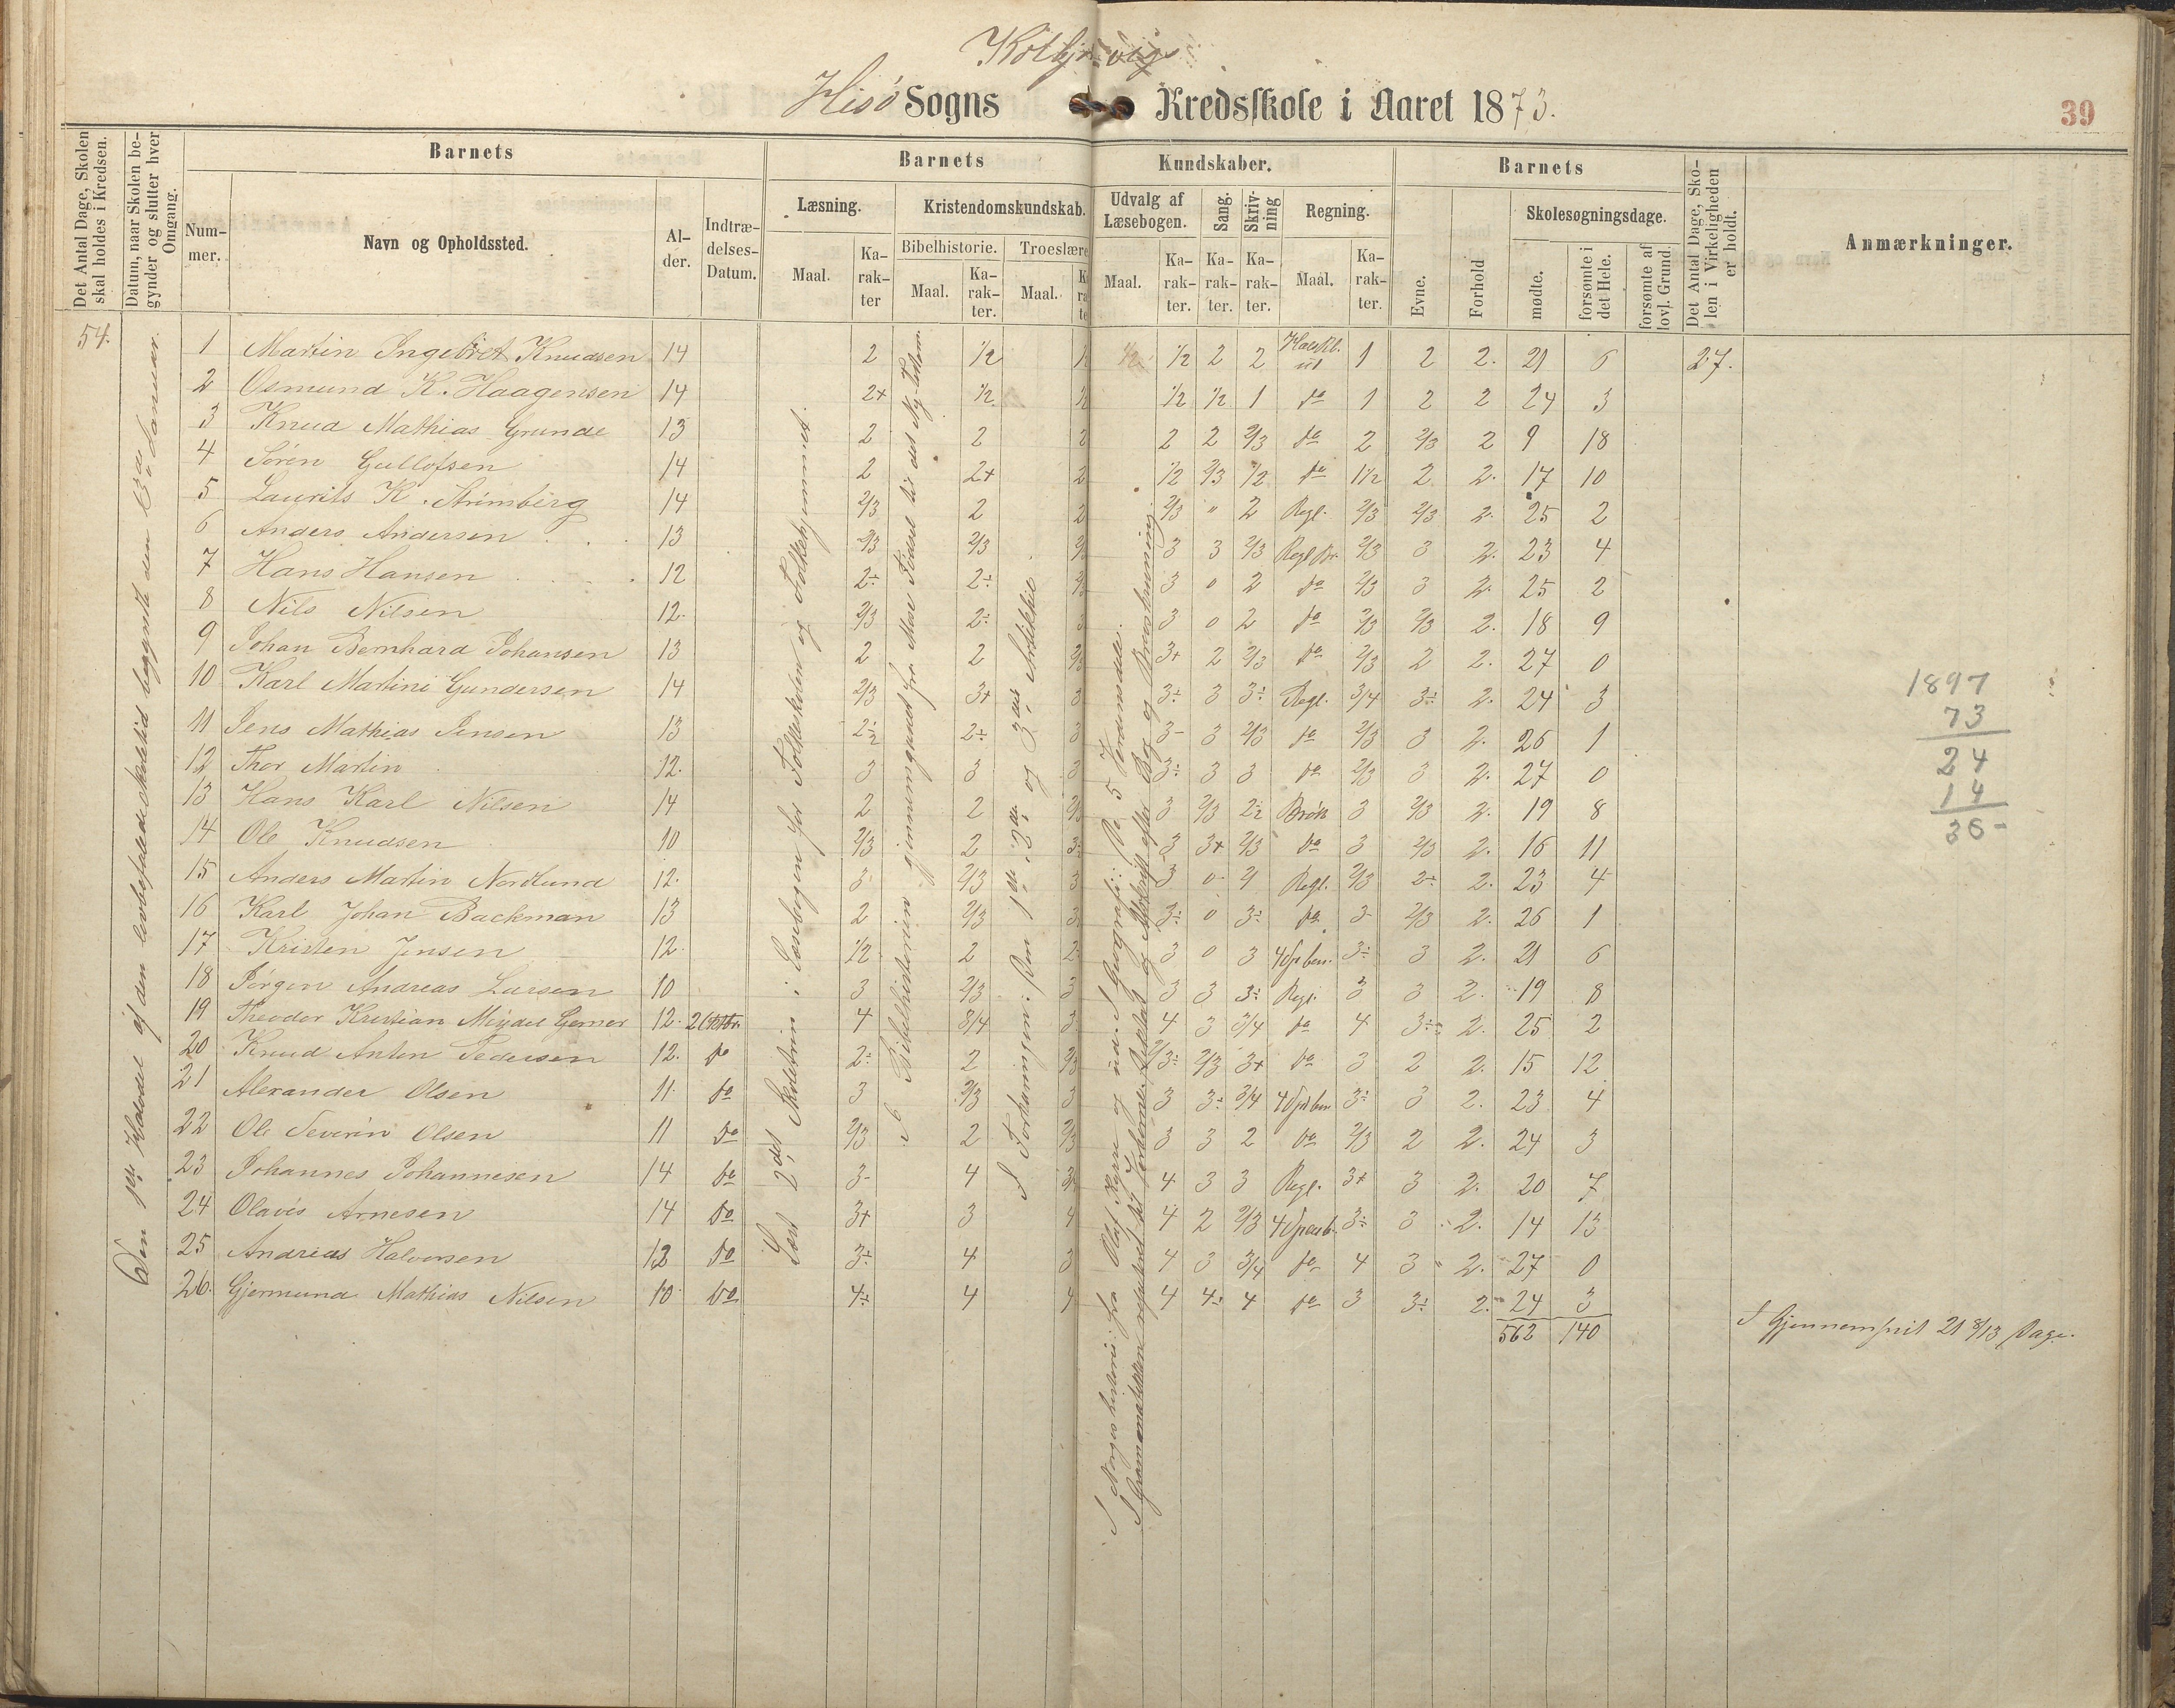 Kolbjørnsvigs
Hisø Sogns Kredsskole i Aaret 1873.
39
Det Antal Dage, Skolen skal holdes i Kredsen.
Datum, naar Skolen begynder og slutter hver Omgang.
Barnets
Nummer.
Navn og Opholdssted.
Alder.
Indtrædelses-Datum.
Barnets Kundskaber.
Læsning.
Maal.
Karakter
Kristendomskundskab.
Bibelhistorie.
Maal.
Karakter.
Troeslære
Maal.
Udvalg af Læsebogen.
Maal.
Karakter.
Sang.
Karakter.
Skrivning
Karakter.
Regning.
Maal.
Karakter.
Barnets
Evne.
Forhold
Skolesøgningsdage.
mødte.
forsømte i det Hele.
forsømte af lovl. Grund.
Det Antal Dage, Skolen i Virkeligheden er holdt.
Anmærkninger.
54.
Den 1ste Halvdel af den lovbefalede Skoletid begyndte den 13de Januar.
1 Martin Ingebret Knudsen 14 2 1/2 1/2 1/2 2 2 1 2 2. 21 6 27.
2 Osmund K. Haagensen 14 2+ 1/2 1/2 1/2 1 do 1 2 2 24 3
3 Knud Mathias Grunde 13 2 2 2 2 2 2/3 do 2 2/3 2 9 18
4 Sören Gullofsen 14 2 2+ 2 1/2 2/3 1/2 do 1 1/2 2 2. 17 10
5 Laurits K. Strimberg 14 2/3 2 2 2/3 " 2 Regl. 2/3 2/3 2. 25 2
6 Anders Andersen 13 2/3 2/3 3 3 2/3 Regl Br. 2/3 3 2. 23 4
7 Hans Hansen 12 2÷ 2÷ 3 0 2 do 2/3 3 2. 25 2
8 Nils Nilsen 12. 2/3 2÷ 3 3 0 2 do 2/3 2/3 2. 18 9
9 Johan Bernhard Johansen 13 2 2 2/3 3+ 2 2/3 do 2/3 2 2. 27 0
10 Karl Martini Gundersen 14 2/3 3+ 3 3÷ 3 3÷ Regl. 3/4 3÷ 2. 24 3
11 Jens Mathias Jensen 13 2÷ 3 3- 3 2/3 do 2/3 3 2. 26 1
12 Thor Martin 12. 3 3 3 3÷ 3 3 do 2/3 3 2. 27 0
13 Hans Karl Nilsen 14 2 2 2/3 3 2/3 Brök 3 2/3 2. 19 8
14 Ole Knudsen 10 2/3 2 3÷ 3 3+ 2/3 do 3 2/3 2. 16 11
15 Anders Martin Nordlund 12. 3 2/3 3 3 0 Regl. 2/3 2÷ 2. 23 4
16 Karl Johan Backman 13 2 2/3 3 3÷ 0 3÷ do 3- 2/3 2. 26 1
17 Kristen Jensen 12. 1/2 2 2 3 0 3 4 Sp ben. 3÷ 3 2. 21 6
18 Jörgen Andreas Larsen 10 3 2/3 3 3 3 3÷ Regl. 3 3 2. 19 8
19 Theodor Kristian Gerner 12. 4 3/4 3 4 3 3/4 do 4 3÷ 2. 25 2
20 Knud Anton Pedersen 12. do 2÷ 2 2/3 2/3 3+ do 3 2 2. 15 12
21 Alexander Olsen 11. do 3 2/3 3 3 3÷ 3/4 3÷ 3 2. 23 4
22 Ole Severin Olsen 11 do 2/3 2 2/3 3 3 2 do 2/3 2 2. 24 3
23 Johannes Johannesen 14 do 3- 4 3/4 4 3 3 Regl. 3+ 3 2. 20 7
24 Olavés Arnesen 14 do 3+ 3 4 4 2 2/3 3÷ 3 2. 14 13
25 Andreas Halvorsen 12 do 3÷ 4 3 4 3 3/4 do 4 3 2. 27 0
26. Gjermund Mathias Nilsen 10 do 4÷ 4 4 4 4÷ 4 do 3 3÷ 2. 24 3
562 140
Læst 2det Skoletrin i Læsebogen for Folkeskolen og Folkehjemmet.
I Bibelhistorien gjennemgaaet fra Mose Födsel til det Ny-Testam.
I Forklaringen: Den 1ste, 2den og 3die Artikkel.
I Norgeshistorie: fra Olaf Kyrre og ud. I Geografi: De 5 Verdensdele.
I Grammatikken
I Gjennemsnit 21 8/13 Dage.
1897
73
24
14
36-